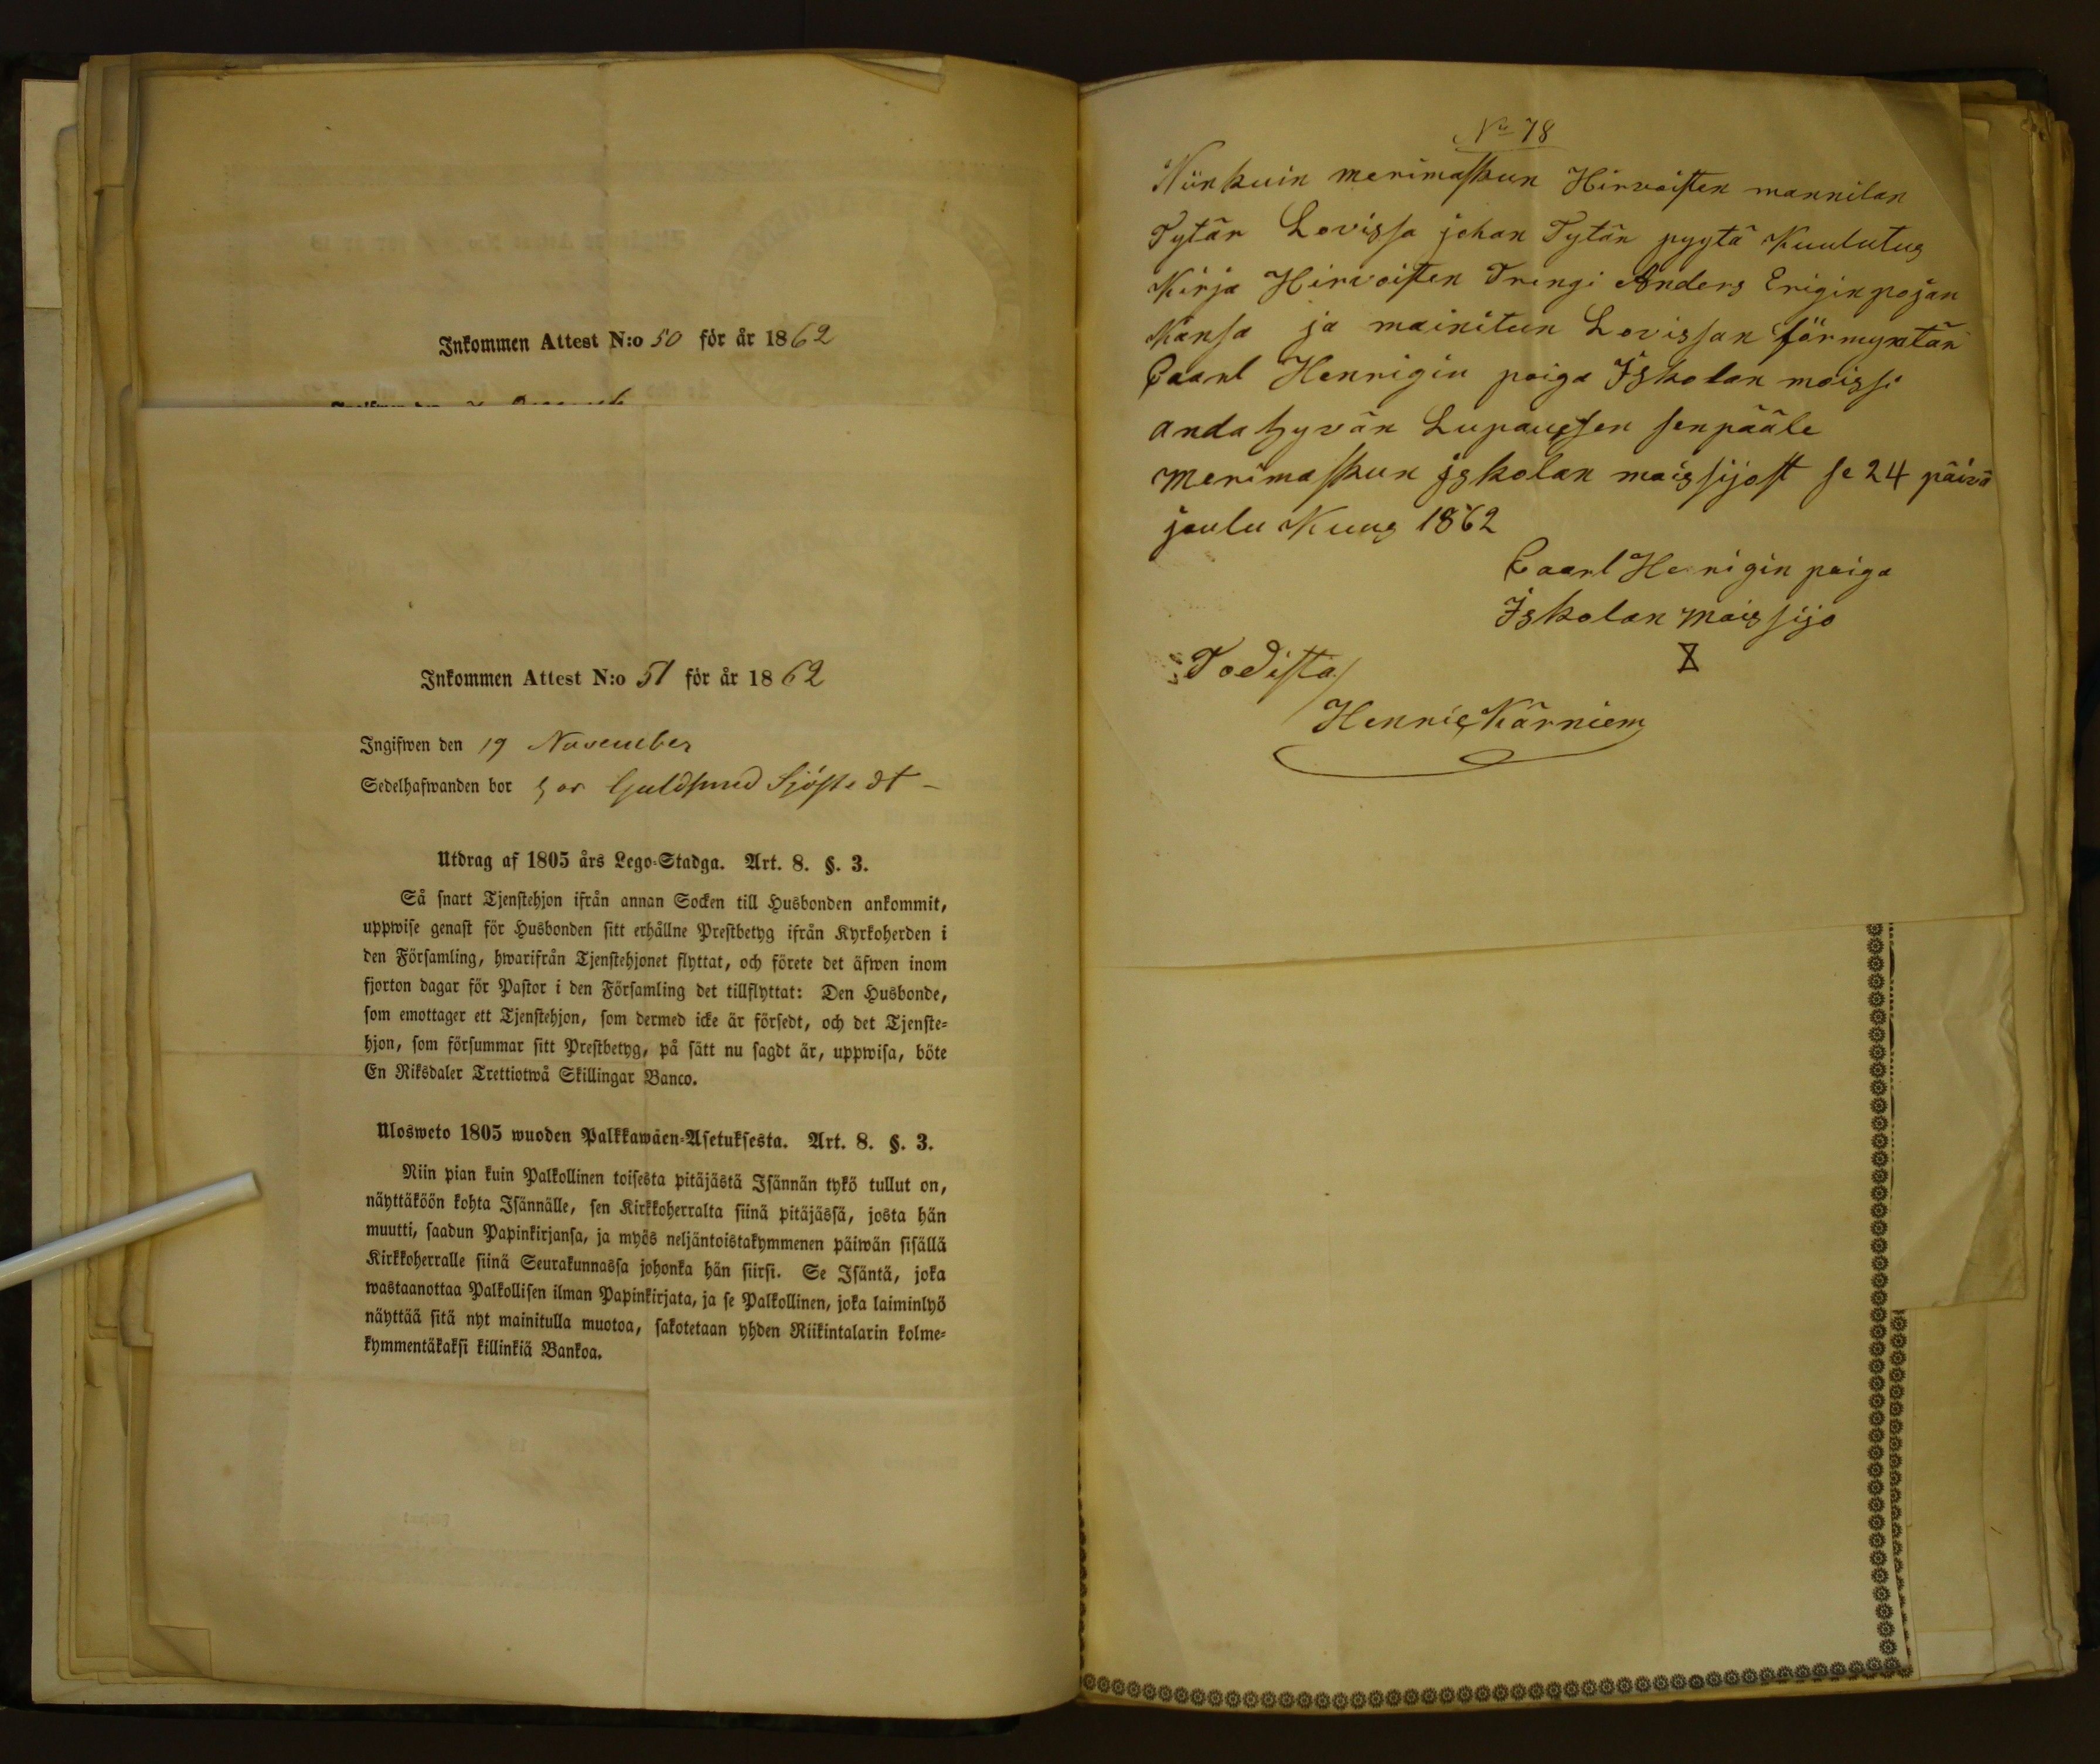 Inkommen Attest N:o 50 för år 1862
Inkommen Attest N:o 51 för år 1862
Ingifwen den 19 November
Sedelhafwanden bor hos Guldsmed Sjöstedt –
Utdrag af 1805 års Lego-Stadga. Art. 8. §. 3.
Så snart Tjenstehjon ifrån annan Socken till Husbonden ankommit,
uppwise genast för Husbonden sitt erhållne Prestbetyg ifrån Kyrkoherden i
den Församling, hwarifrån Tjenstehjonet flyttat, och förete det äfwen inom
fjorton dagar för Pastor i den Församling det tillflyttat: Den Husbonde,
som emottager ett Tjenstehjon, som dermed icke är försedt, och det Tjenste-
hjon, som försummar sitt Prestbetyg, på sätt nu sagdt är, uppwisa, böte
En Riksdaler Trettiotwå Skillingar Banco.
Ulosweto 1805 wuoden Palkkawäen-Asetuksesta. Art. 8. §. 3.
Niin pian kuin Palkollinen toisesta pitäjästä Isännän tykö tullut on,
näyttäköön kohta Isännälle, sen Kirkkoherralta siinä pitäjässä, josta hän
muutti, saadun Papinkirjansa, ja myös neljäntoistakymmenen päiwän sisällä
Kirkkoherralle siinä Seurakunnassa johonka hän siirsi. Se Isäntä, joka
wastaanottaa Palkollisen ilman Papinkirjata, ja se Palkollinen, joka laiminlyö
näyttää sitä nyt mainitulla muotoa, sakotetaan yhden Riikintalarin kolme-
kymmentäkaksi killinkiä Bankoa.
No 78
Niinkuin merimaskun Hirvoisten mannilan
Tytär Lovissa johan Tytär pyytä Kuulutus
Kirja Hirvoisten Trengi Anders Eriginpojan
Kansa ja mainitun Lovissan förmyntän
Caarl Henrigin poiga Iskolan moissi
anda hyvän Lupauxsen senpääle
merimaskun jskolan maissijost se 24 päivä
joulu Kuus 1862
Caarl Henrigin poiga
Iskolan maissijo
Todista/
Henric Kärniem